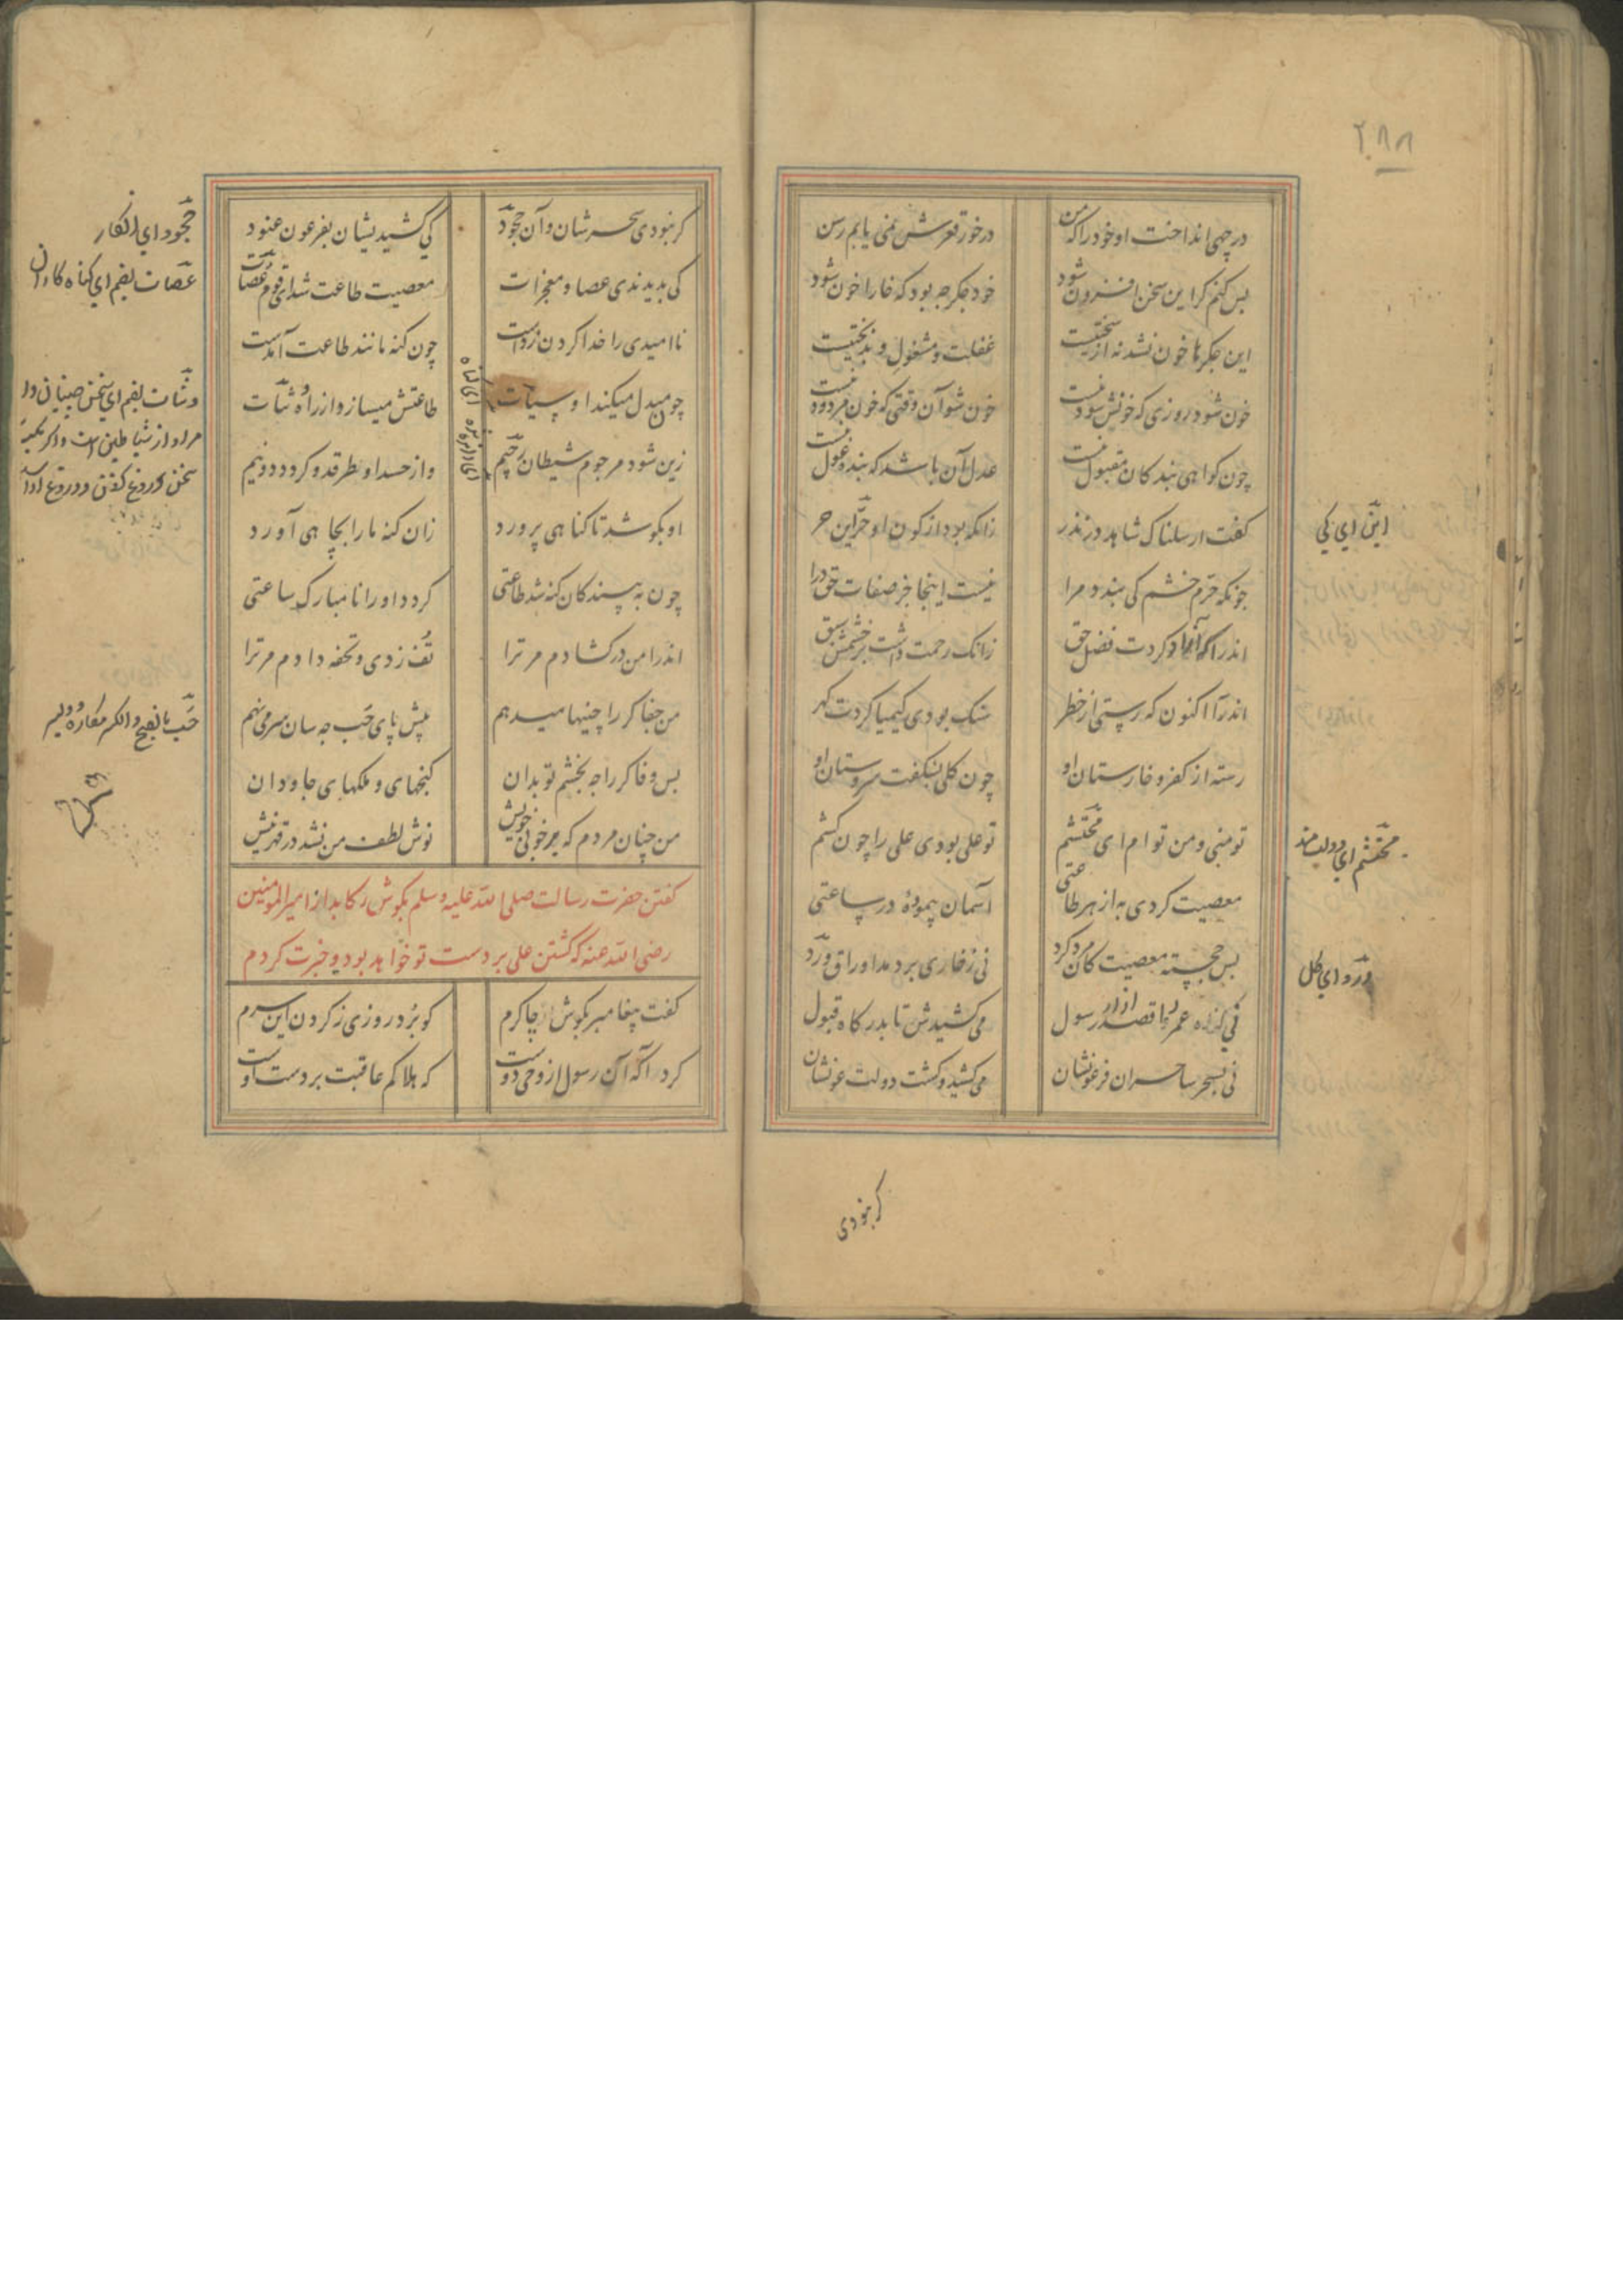 ۲۸۸
در چهی انداخت او خود را که من
درخور قعرش نمی یابم رسن
بس کنم کر این سخن افزون شود
خود جکر جه بود که خارا خون شود
این جکرها خون نشد نه از سختیست
غفلت و مشغولی و بدبختیست
خون شود روزی که خونش سود نیست
خون شو آن وقتی که خون مردود نیست
چون کواهی بندکان مقبول نیست
عدل آن باشد که بنده غول نیست
کفت ارسلناک شاهد در نذر
زانکه بود از کون او حرّ ابن حر
چونکه حرم خشم کی بندد مرا
نیست اینجا جز صفات حق درا
اندرا کازاد کردت فضل حق
زانک رحمت داشت بر خشمش سبق
اندرآ اکنون که رستی از خطر
سنک بودی کیمیا کردت کهر
رسته از کفر و خارستان او
چون کلی بشکفت سروستان او
تو منی و من توام ای محتشم
تو علی بودی علی را چون کشم
معصیت کردی به از هر طاعتی
آسمان پیمودهٔ در ساعتی
بس خجسته معصیت کان مرد کرد
نی ز خاری بردمد اوراق ورد
نی کناه عمر و قصد آزار رسول
می کشیدش تا بدرکاه قبول
نی بسحر ساحران فرعونشان
می کشید و کشت دولت عونشان
این ای کی
محتشم ای دولت مند
ورد ای کل
کر نبودی
کر نبودی سحرشان و آن جحود
کی کشیدیشان بفرعون عنود
کی بدیدندی عصا و معجزات
معصیت طاعت شد ای قوم عصات
ناامیدی را خدا کردن زدست
چون کنه مانند طاعت آمدست
چون مبدل میکند او سیّات
طاعتش میسازد از راه وشات
زین شود مرجوم شیطان رجیم
وز حسد او بطرقد و کردد دو نیم
او بکوشد تا کناهی پرورد
زان کنه ما را بچاهی آورد
چون به بیند کان کنه شد طاعتی
کردد او را نامبارک ساعتی
اندرا من در کشادم مر ترا
تف زدی و تحفه دادم مر ترا
من جفاکر را چنینها میدهم
پیش پای خب جه سان سر می نهم
بس وفاکر را جه بخشم تو بدان
کنجهای و ملکهای جاودان
من چنان مردم که بر خونی خویش
نوش لطف من نشد در قهر نیش
کفتن حضرت رسالت صلی الله علیه وسلم بکوش رکابدار امیرالمومنین
رضی الله عنه که کشتن علی بر دست تو خواهد بود و خبرت کردم
کفت پیغامبر بکوش چاکرم
کو برد روزی ز کردن این سرم
کرد آکه آن رسول از وحی دوست
که هلاکم عاقبت بر دست اوست
جحود ای انکار
عصات بضم ای کناه کاران
خب بالفتح والکسر مکاره